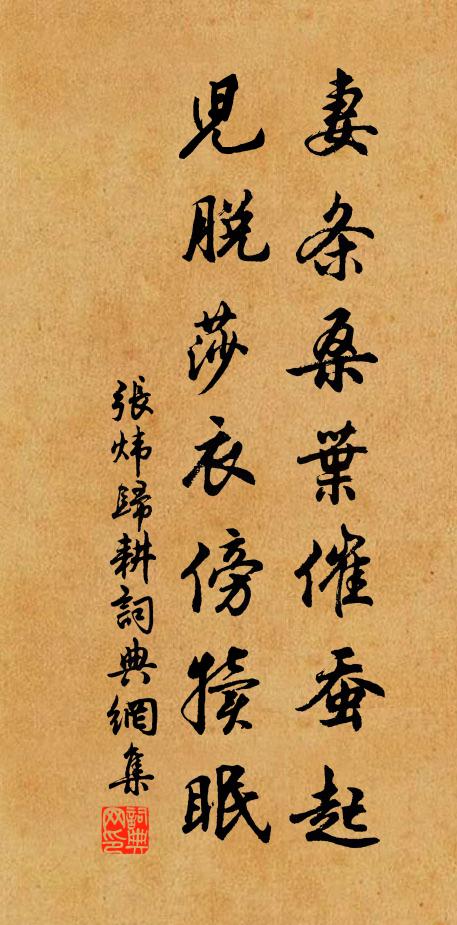 妻条桑葉催蚕起
児脱莎衣傍犢眠
張炜歸耕詞典網集
詞典网印